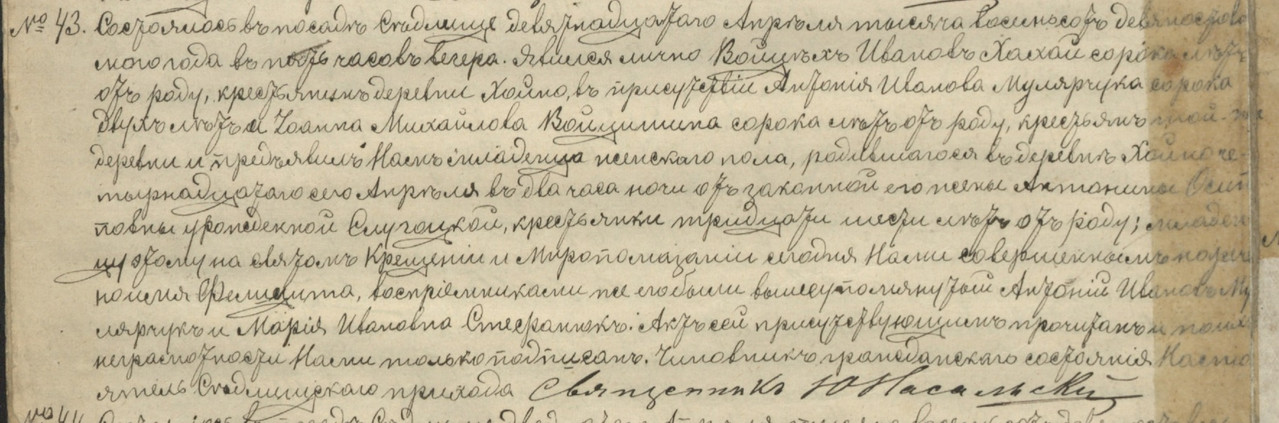 № 43. Состоялось въ посадѣ Сѣдлище девятнадцатаго Апрѣля тысяча восемьсотъ девяносто во-
сьмого года въ пять часовъ вечера. Явился лично Войцѣхъ Ивановъ Хахай сорока лѣтъ
отъ роду, крестьянинъ деревни Хойно, въ присутствіи Антонія Иванова Мулярчука сорока
двухъ лѣтъ и Іоанна Михайлова Войцишина сорока лѣтъ отъ роду, крестьянъ той-же
деревни и предъявилъ Намъ младенца женскаго пола, родившагося въ деревнѣ Хойно че-
тырнадцатаго сего Апрѣля въ два часа ночи отъ законной его жены Антонины Осип-
повны урожденной Слугоцкой, крестьянки тридцати шести лѣтъ отъ роду; младен-
цу этому на святомъ Крещеніи и Миропомазаніи сегодня Нами совершенномъ нарече-
но имя Фелицита, воспріемниками же его были вышеупомянутый Антоній Ивановъ Му-
лярчукъ и Марія Ивановна Стефанюкъ. Актъ сей присутствующимъ прочитанъ и по ихъ
неграмотности Нами только подписанъ. Чиновникъ гражданскаго состоянія Насто-
ятель Сѣдлищскаго прихода Священникъ Ю Насальскій
№ 44.